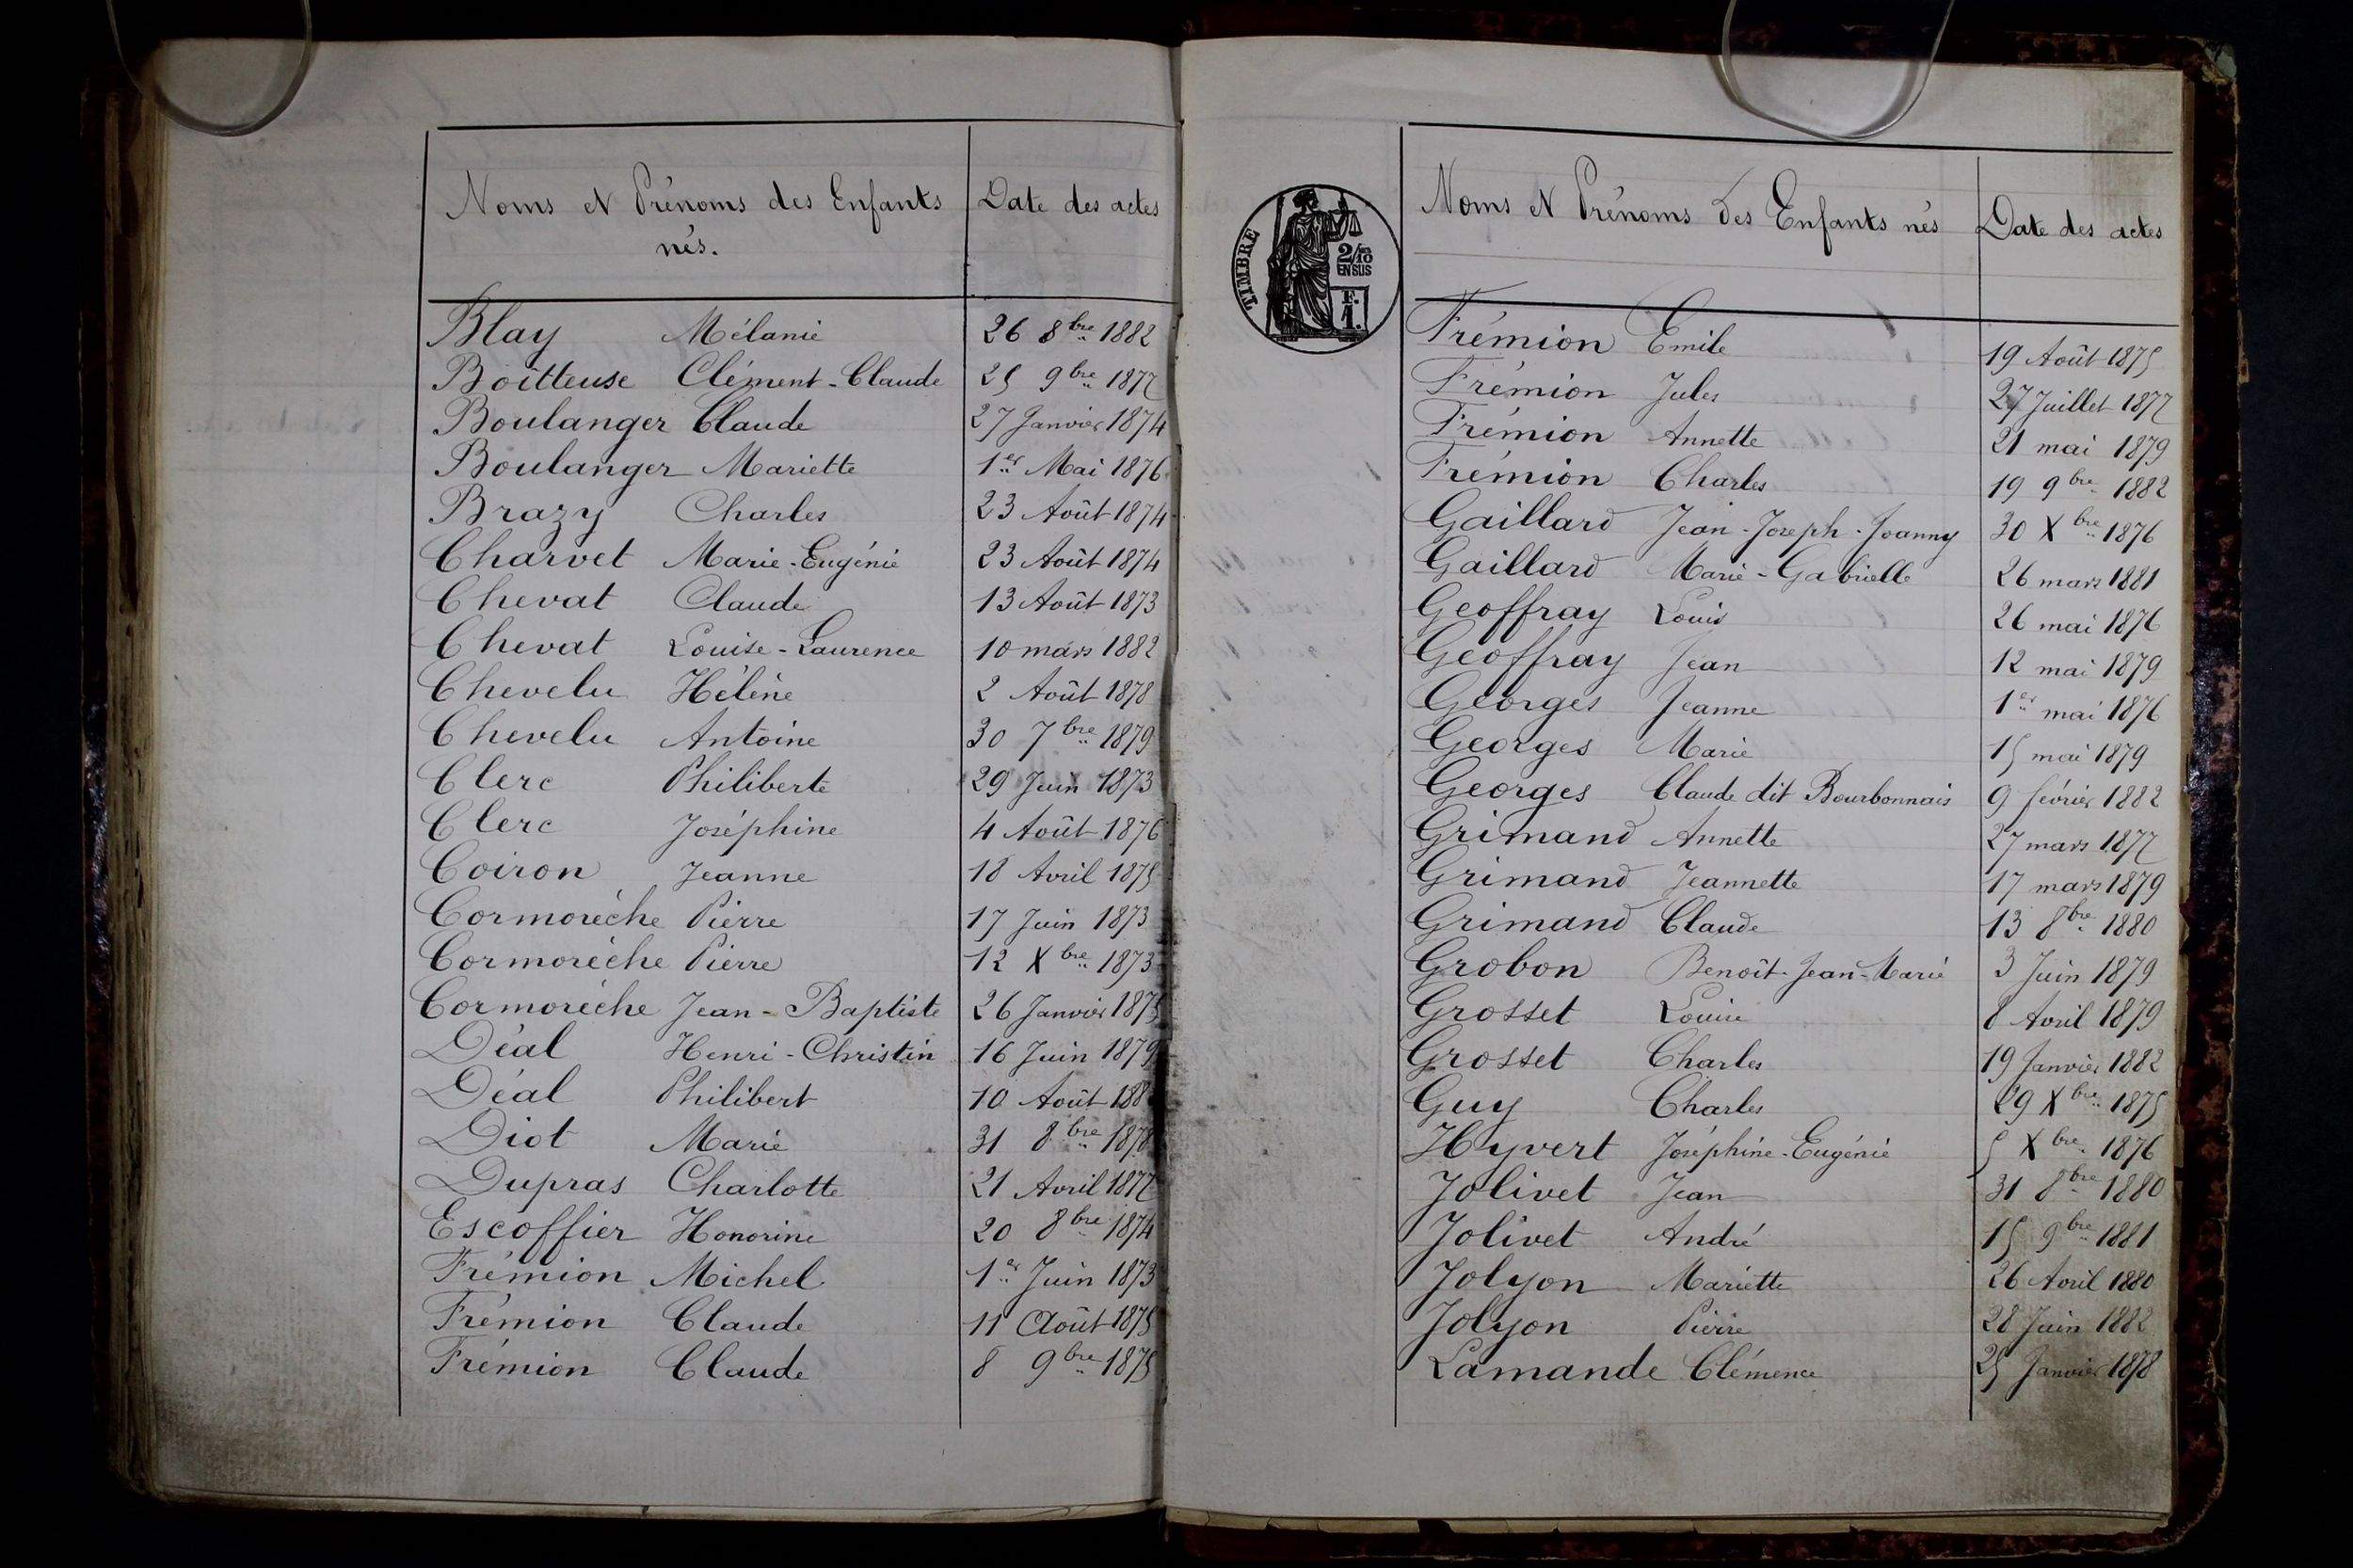 Noms et Prénoms des Enfants
nés.
Date des actes
Blay Mélanie 26 8bre 1882
Boîtteuse Clément-Claude 25 9bre 1877
Boulanger Claude 27 Janvier 1874
Boulanger Mariette 1er Mai 1876
Brazy Charles 23 Août 1874
Charvet Marie-Eugénie 23 Août 1874
Chevat Claude 13 Août 1873
Chevat Louise-Laurence 10 mars 1882
Chevelu Hélène 2 Août 1878
Chevelu Antoine 30 7bre 1879
Clerc Philiberte 29 Juin 1873
Clerc Joséphine 4 Août 1876
Coiron Jeanne 18 Avril 1875
Cormorèche Pierre 17 Juin 1873
Cormorèche Pierre 12 Xbre 1873
Cormorèche Jean-Baptiste 26 Janvier 1875
Déal Henri-Christin 16 Juin 1879
Déal Philibert 10 Août
Diot Marie 31 8bre 1878
Dupras Charlotte 21 Avril 1877
Escoffier Honorine 20 8bre 1874
Frémion Michel 1er Juin 1873
Frémion Claude 11 Août 1875
Frémion Claude 8 9bre 1875
TIMBRE
2/10
EN SUS
F.
1.
Noms et Prénoms des Enfants nés
Date des actes
Frémion Emile 19 Août 1875
Frémion Jules 27 Juillet 1877
Frémion Annette 21 mai 1879
Frémion Charles 19 9bre 1882
Gaillard Jean-Joseph-Joanny 30 Xbre 1876
Gaillard Marie-Gabrielle 26 mars 1881
Geoffray Louis 26 mai 1876
Geoffray Jean 12 mai 1879
Georges Jeanne 1er mai 1876
Georges Marie 15 mai 1879
Georges Claude dit Bourbonnais 9 février 1882
Grimand Annette 27 mars 1877
Grimand Jeannette 17 mars 1879
Grimand Claude 13 8bre 1880
Grobon Benoît-Jean-Marie 3 Juin 1879
Grosset Louise 8 Avril 1879
Grosset Charles 19 Janvier 1882
Guy Charles 29 Xbre 1875
Hyvert Joséphine-Eugénie 5 Xbre 1876
Jolivet Jean 31 8bre 1880
Jolivet André 15 9bre 1881
Jolyon Mariette 26 Avril 1880
Jolyon Pierre 28 Juin 1882
Lamande Clémence 25 Janvier 1878